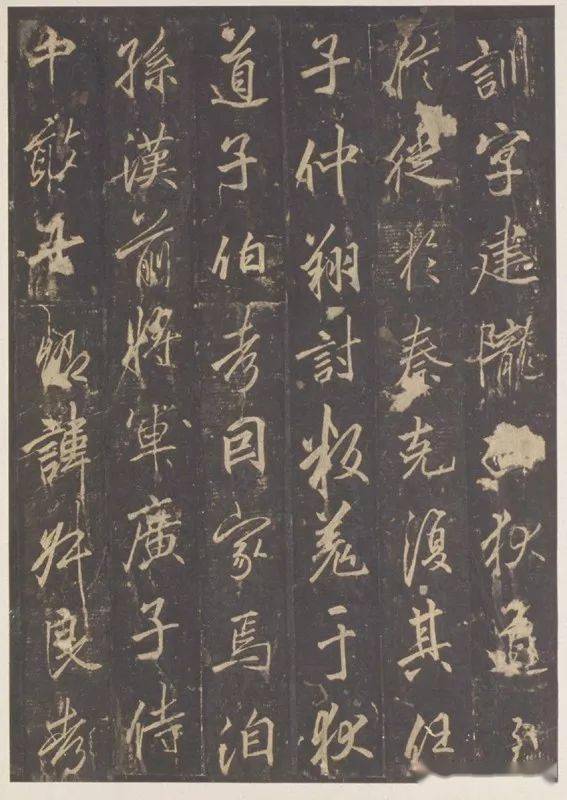 訓字建隴西狄道
徙於秦克復其任
子仲翔討叛羌于狄
道子伯考因家焉洎
孫漢前將軍廣子侍
中敢諱叔良考